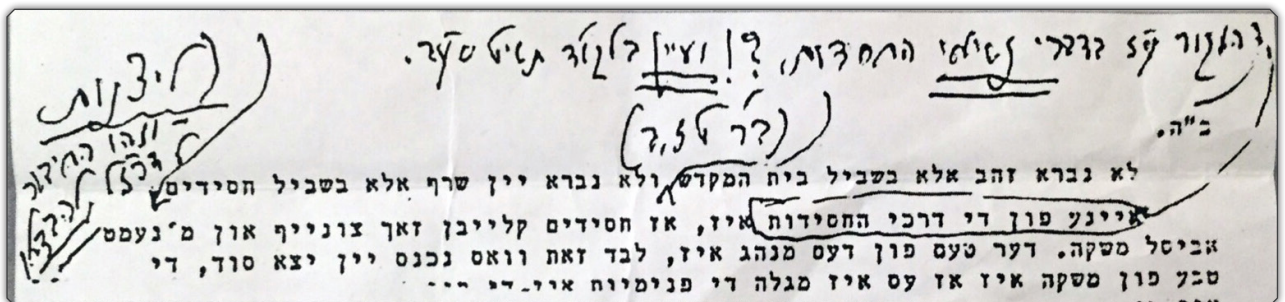 המקור ע"ז בדברי נשיאי החסידות, ?! ועיין
(ב"ר טז, ב)
ליצנות
ב"ה.
לא נברא זהב אלא בשביל בית המקדש ולא נברא יין שרף אלא בשביל חסידים
איינע פון די דרכי החסידות איז, אז חסידים קלייבן זאך צונייף און מ'נעמט
אביסל משקה. דער טעם פון דעם מנהג איז, לבד זאת וואס נכנס יין יצא סוד, די
טבע פון משקה איז אז עס איז מגלה די פנימיות